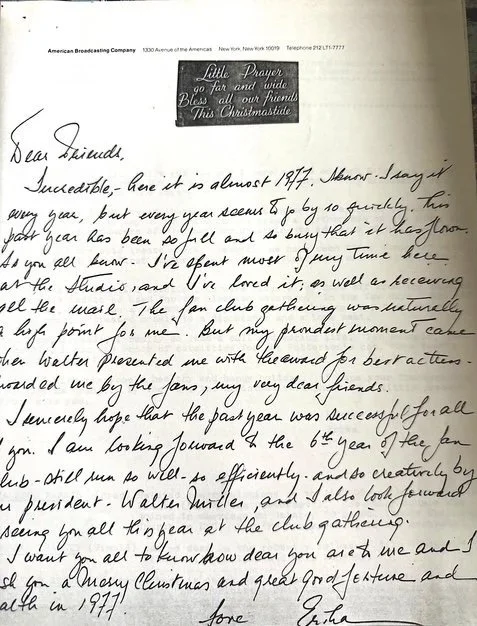 American Broadcasting Company 1330 Avenue of the Americas New York, New York 10019 Telephone 212 LT1-7777
Little Prayer
go far and wide
Bless all our friends
This Christmastide
Dear Friends,
Incredible,- here it is almost 1977. I know - I say it
every year, but every year seems to go by so quickly. This
past year has been so full and so busy that it has flown.
As you all know - I've spent most of my time here
at the studio, and I've loved it, as well as receiving
all the mail. The fan club gathering was naturally
a high point for me. But my proudest moment came
hen Walter presented me with the award for best actress -
warded me by the fans, my very dear friends.
I sincerely hope that the past year was successful for all
you. I am looking forward to the 6th year of the fan
lub - still run so well - so efficiently - and so creatively by
r president - Walter Miller, and I also look forward
seeing you all this year at the club gathering.
I want you all to know how dear you are to me and I
sh you a Merry Christmas and great good fortune and
alth in 1977!
Love Erika